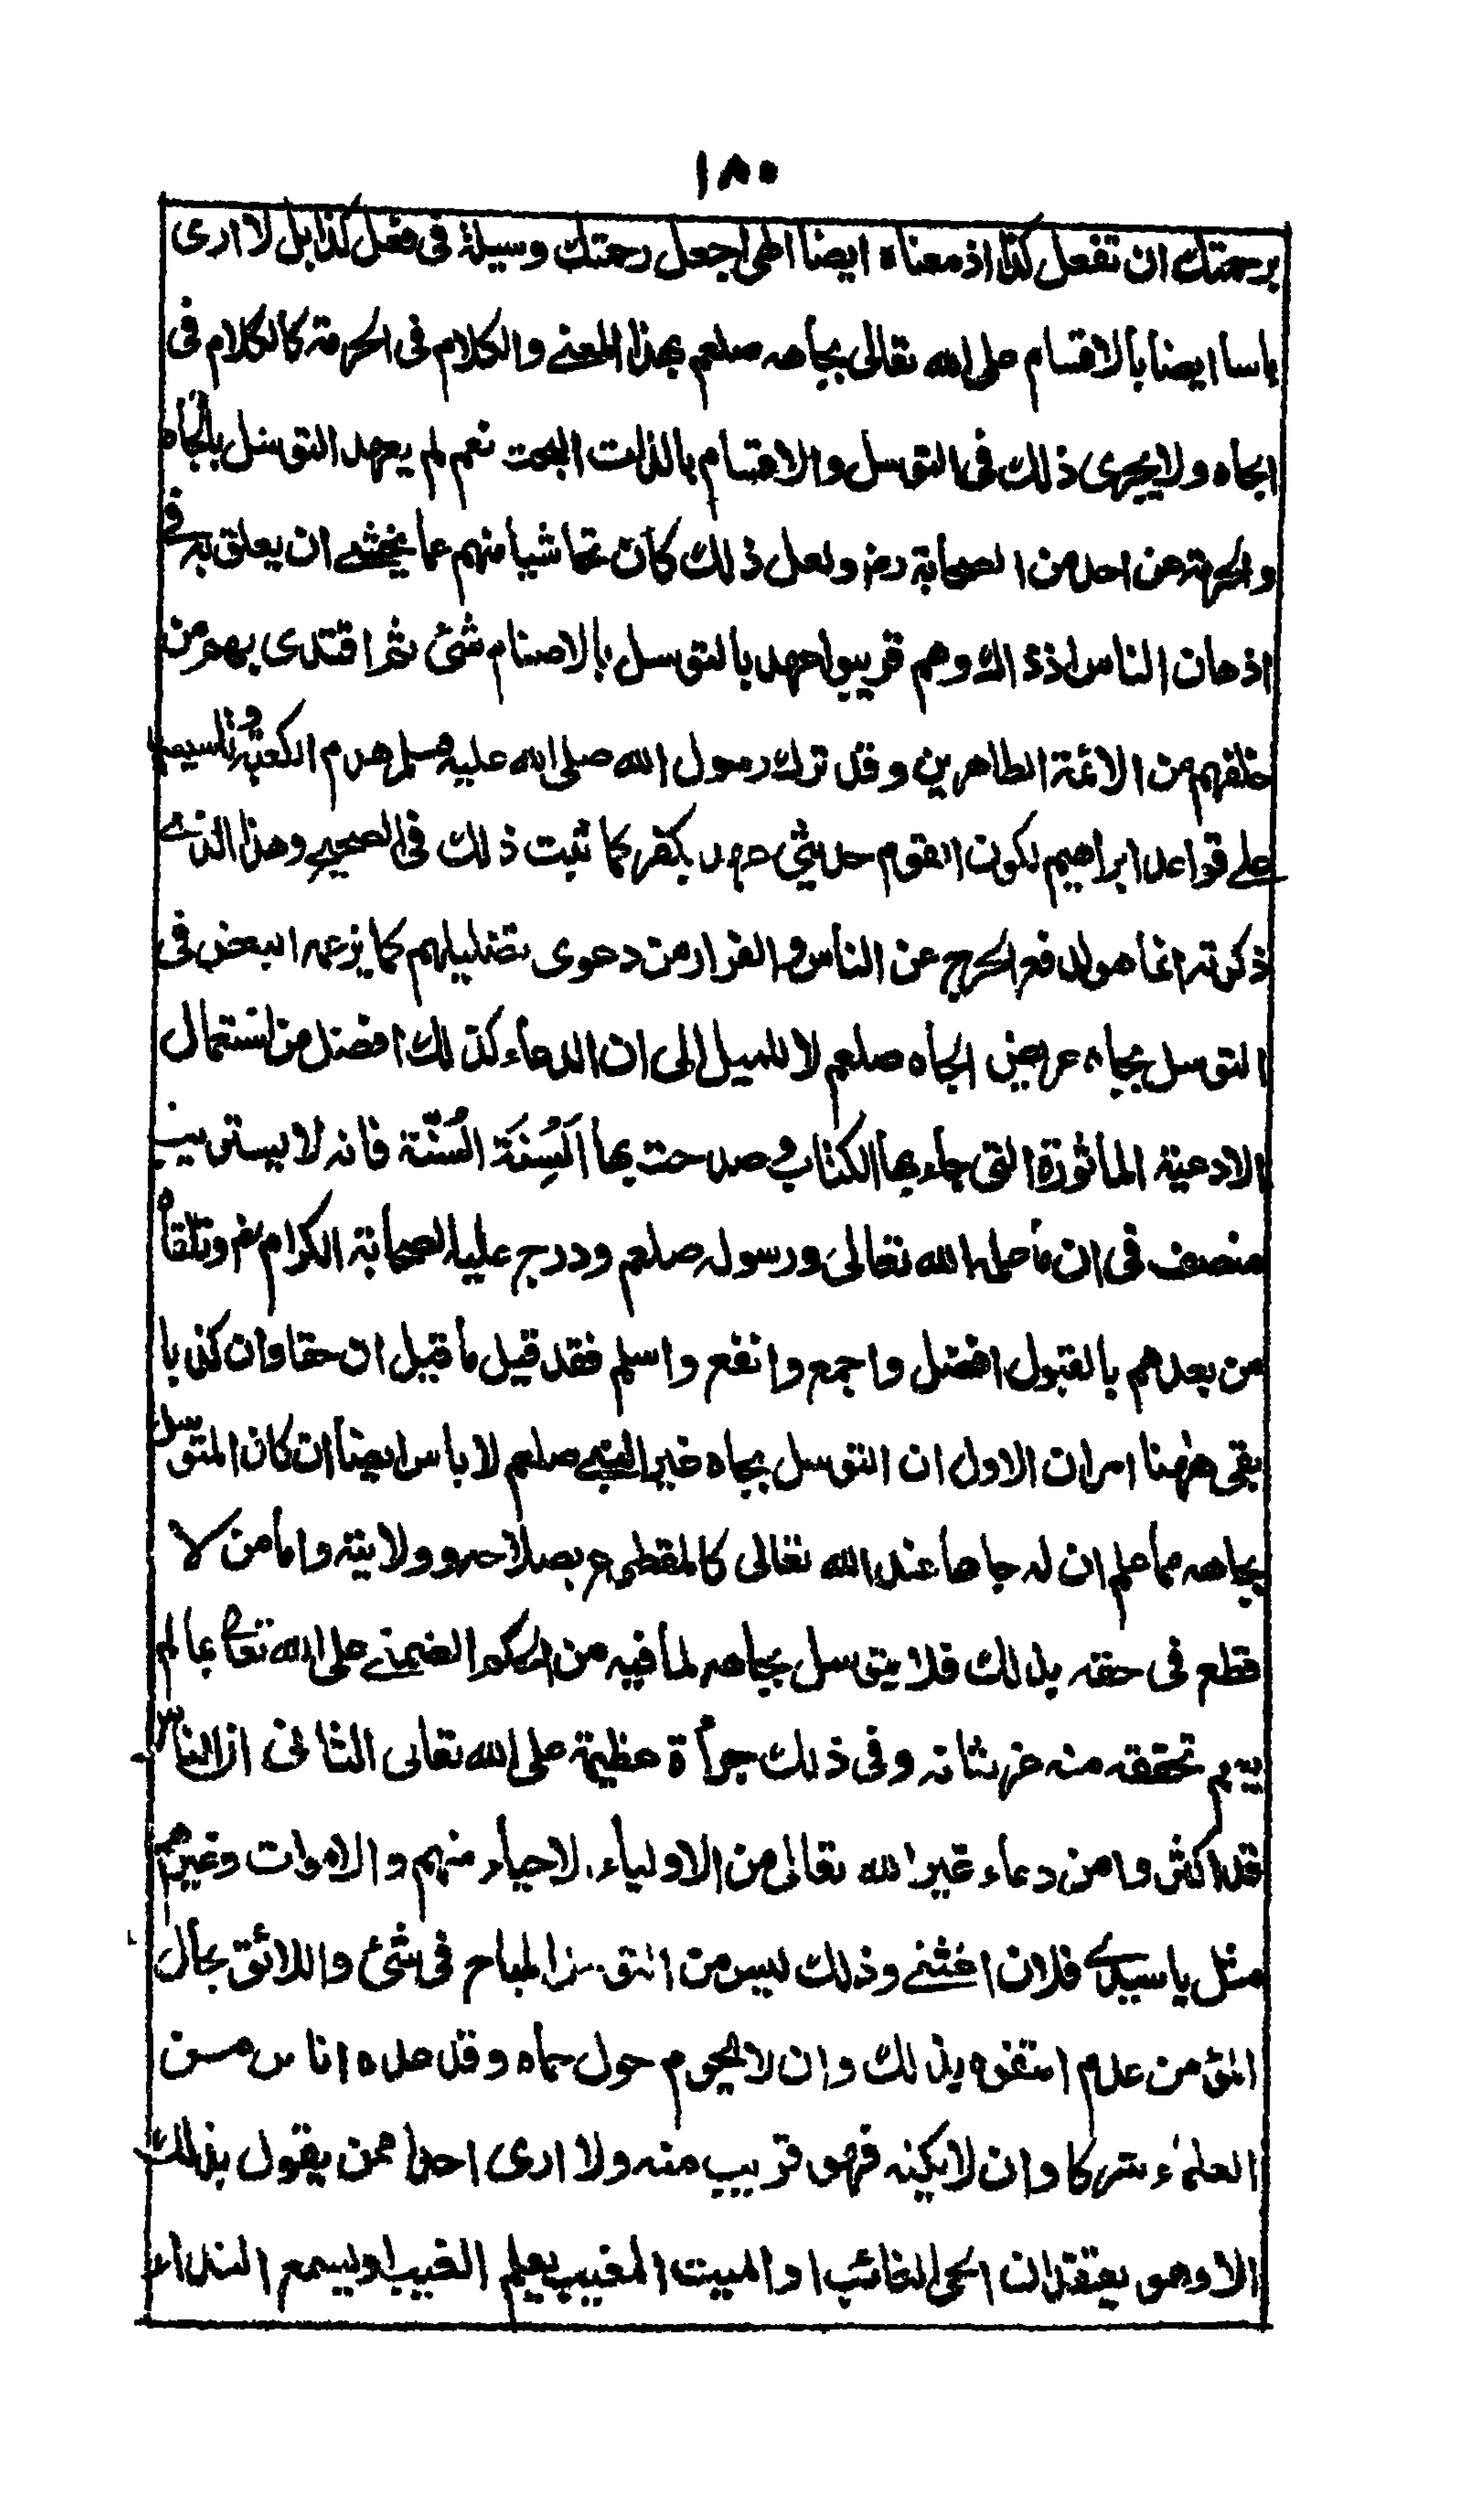 ١٨٠
برحمتك ان تفعل كذا اذ معناه ايضا الهى اجعل رحمتك وسيلة فى فعل كذا بل لا ارى
باسا ايضا بالاقسام على الله تعالى بجاهه صلعم بهذا المعنے والكلام فى الحرمة كالكلام فى
الجاه ولا يجرى ذلك فى التوسل والاقسام بالذات البحت نعم لم يعهد التوسل بالجاه
والحرمة عن احد من الصحابة رضـ ولعل ذلك كان تحاشيا منهم عما يخشے ان يعلق به فى
اذهان الناس اذ ذاك وهم قريبوا عهد بالتوسل بالاصنام شئ ثم اقتدى بهم من
خلفهم من الائمة الطاهرين وقد ترك رسول الله صلى الله عليه وسلم هدم الكعبة وتاسيسها
علے قواعد ابراهيم لكون القوم حديثى عهد بكفر كما ثبت ذلك فى الصحيح وهذا الذے
ذكرته انما هو لدفع الحرج عن الناس والفرار من دعوى تضليلهم كما يزعمه البعض فى
التوسل بجاه عريض الجاه صلعم لا للميل الى ان الدعاء كذلك افضل من استعمال
الادعية الماثورة التى جاء بها الكتاب وصدحت بها اَلْسِنَة السُّنّة فانه لا يستريب
منصف فى ان ما علمه الله تعالى ورسوله صلعم ودرج عليه الصحابة الكرام رضـ وتلقاه
من بعدهم بالقبول افضل واجمع وانفع واسلم فقد قيل ما قيل ان حقا وان كذبا
بقى ههنا امران الاول ان التوسل بجاه غير النبے صلعم لا باس ايضا ان كان المتوسل
بجاهه مما علم ان له جاها عند الله تعالى كالمقطوع بصلاحه وولايته واما من لا
قطع فى حقه بذلك فلا يتوسل بجاهه لما فيه من الحكم الضمنے على الله تعالى بما لم
يتم تحققه منه عز شانه وفى ذلك جرأة عظيمة على الله تعالى الثانى ان الناس
قد اكثروا من دعاء غير الله تعالى من الاولياء الاحياء منهم والاموات وغيرهم
مثل يا سيدے فلان اغثنے وذلك ليس من التوسل المباح فى شئ واللائق بحال
المؤمن عدم التفوه بذلك وان لا يحوم حول حماه وقد عده اناس من
العلماء شركا وان لا يكنه فهو قريب منه ولا ارى احدا ممن يقول بذلك
الا وهو يعتقد ان الحى الغائب او الميت المغيب يعلم الغيب او يسمع النداء